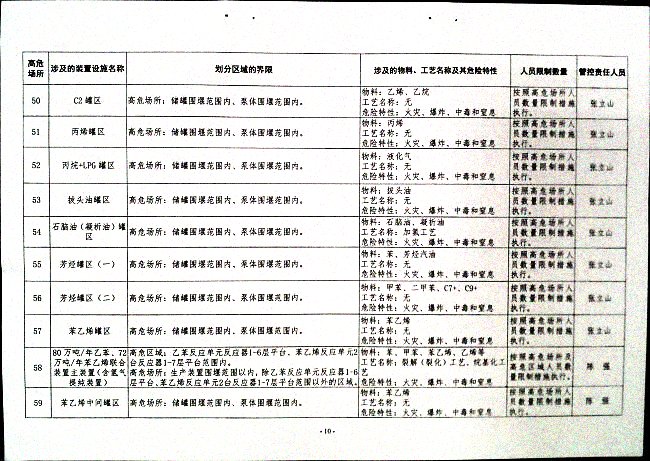 高危场所 涉及的装置设施名称 划分区域的界限 涉及的物料、工艺名称及其危险特性 人员限制数量 管控责任人员
50 C2罐区 高危场所：储罐围堰范围内、泵体围堰范围内。 物料：乙烯、乙烷
工艺名称：无
危险特性：火灾、爆炸、中毒和窒息 按照高危场所人员数量限制措施执行。 张立山
51 丙烯罐区 高危场所：储罐围堰范围内、泵体围堰范围内。 物料：丙烯
工艺名称：无
危险特性：火灾、爆炸、中毒和窒息 按照高危场所人员数量限制措施执行。 张立山
52 丙烷+LPG罐区 高危场所：储罐围堰范围内、泵体围堰范围内。 物料：液化气
工艺名称：无
危险特性：火灾、爆炸、中毒和窒息 按照高危场所人员数量限制措施执行。 张立山
53 拔头油罐区 高危场所：储罐围堰范围内、泵体围堰范围内。 物料：拔头油
工艺名称：无
危险特性：火灾、爆炸、中毒和窒息 按照高危场所人员数量限制措施执行。 张立山
54 石脑油（凝析油）罐区 高危场所：储罐围堰范围内、泵体围堰范围内。 物料：石脑油、凝析油
工艺名称：加氢工艺
危险特性：火灾、爆炸、中毒和窒息 按照高危场所人员数量限制措施执行。 张立山
55 芳烃罐区（一） 高危场所：储罐围堰范围内、泵体围堰范围内。 物料：苯、芳烃汽油
工艺名称：无
危险特性：火灾、爆炸、中毒和窒息 按照高危场所人员数量限制措施执行。 张立山
56 芳烃罐区（二） 高危场所：储罐围堰范围内、泵体围堰范围内。 物料：甲苯、二甲苯、C7+、C9+
工艺名称：无
危险特性：火灾、爆炸、中毒和窒息 按照高危场所人员数量限制措施执行。 张立山
57 苯乙烯罐区 高危场所：储罐围堰范围内、泵体围堰范围内。 物料：苯乙烯
工艺名称：无
危险特性：火灾、爆炸、中毒和窒息 按照高危场所人员数量限制措施执行。 张立山
58 80万吨/年乙苯、72万吨/年苯乙烯联合装置主装置（含氢气提纯装置） 高危区域：乙苯反应单元反应器1-6层平台、苯乙烯反应单元2台反应器1-7层平台范围内。
高危场所：生产装置围堰范围以内，除乙苯反应单元反应器1-6层平台、苯乙烯反应单元2台反应器1-7层平台范围以外的区域。 物料：苯、甲苯、苯乙烯、乙烯等
工艺名称：裂解（裂化）工艺、烷基化工艺
危险特性：火灾、爆炸、中毒和窒息 按照高危场所及高危区域人员数量限制措施执行。 陈强
59 苯乙烯中间罐区 高危场所：储罐围堰范围内、泵体围堰范围内。 物料：苯乙烯
工艺名称：无
危险特性：火灾、爆炸、中毒和窒息 按照高危场所人员数量限制措施执行。 陈强
- 10 -